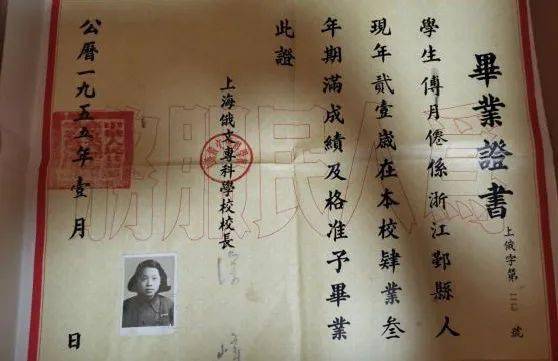 畢業證書
上俄字第 號
學生傅月倦係浙江鄞縣人
現年貳壹歲在本校肄業叁
年期滿成績及格准予畢業
此證
上海俄文專科學校校長
公曆一九五五年壹月 日
爲人民服務